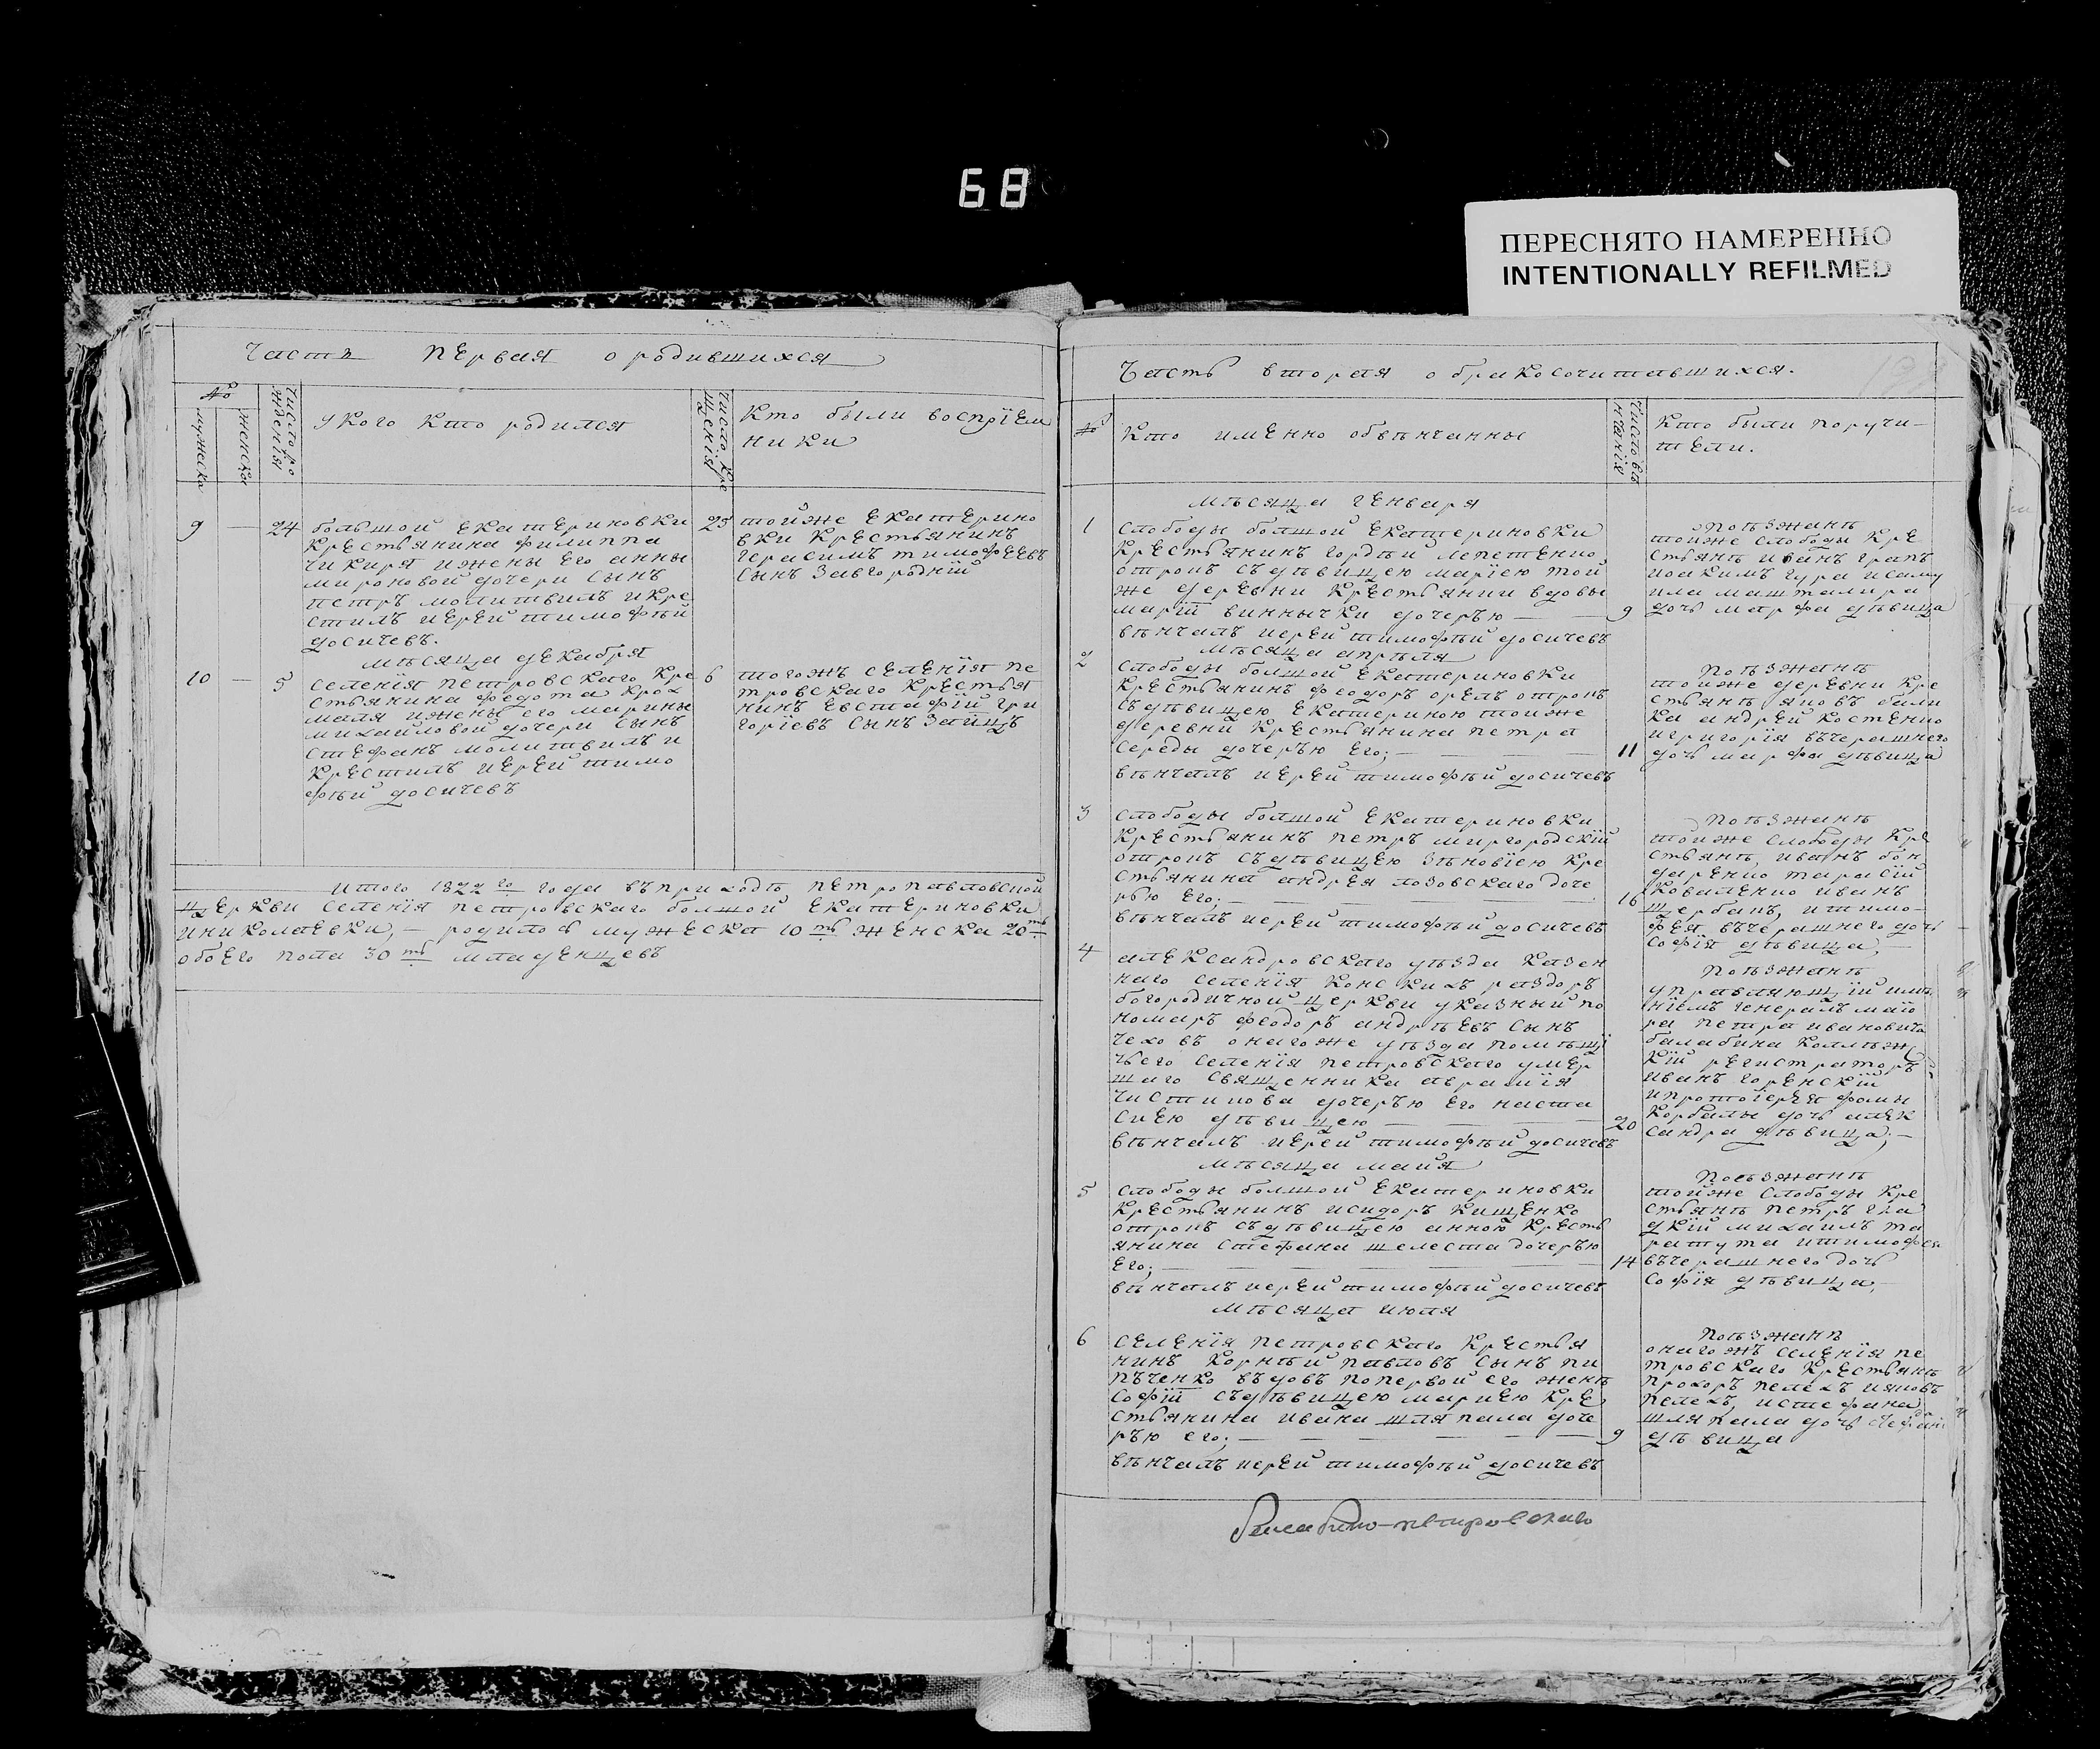 68
ПЕРЕСНЯТО НАМЕРЕННО
INTENTIONALLY REFILMED
Часть первая о родившихся
№
мужеска
женска
Число ро
жденія
У кого кто родился
Число кре
щенія
Кто были воспріем
ники
9 — 24
большой Екатериновки
крестьянина филиппа
Чикиря и жены его анны
мироновой дочери сынъ
петръ молитвилъ и кре
стилъ иерей тимофѣй
досичевъ.
25
тойже Екатерино
вки крестьянинъ
герасимъ тимофеевъ
сынъ Завгородній
мѣсяца декабря
10 — 5
селенія петровскаго кре
стьянина федота крох
маля и жены его марины
михайловой дочери сынъ
стефанъ молитвилъ и
крестилъ иерей тимо
фѣй досичевъ
6
тогожъ селенія пе
тровскаго крестья
нинъ евстафій гри
горіевъ сынъ Заицъ
итого 1822го года въ приходѣ петропавловской
церкви селенія петровскаго болшой екатериновки
и николаевки, — родилось мужеска 10ть женска 20ть
обоего пола 30ть младенцевъ
Часть вторая о бракосочитавшихся.
№
Кто именно обвѣнчанны
Число вѣ
нчанія
Кто были поручи—
тели.
мѣсяца генваря
1
слободы болшой екатериновки
крестьянинъ гордѣй лепетенко
отрокъ съ дѣвицею маріею той
же деревни крестьянки вдовы
маріи виннычки дочерью — —
вѣнчалъ иерей тимофѣй досичевъ
9
поѣзжанѣ
тойже слободы кре
стьянѣ иванъ грапъ
иоакимъ гура и саму
ила машталира
дочь марфа дѣвица
мѣсяца апрѣля
2
слободы болшой екатериновки
крестьянинъ феодоръ орелъ отрокъ
съ дѣвицею екатериною тойже
деревни крестьянина петра
середы дочерью его; —
вѣнчалъ иерей тимофѣй досичевъ
11
поѣзжанѣ
тойже деревни кре
стьянѣ яковъ гали
ка андрей костенко
игригорія вѣчерашнего
дочь марфа дѣвица
3
слободы болшой екатериновки
крестьянинъ петръ миргородскій
отрокъ съ дѣвицею зѣновіею кре
стьянина андрея лозовскаго доче
рью его; —
вѣнчалъ иерей тимофѣй досичевъ
16
поѣзжанѣ
тойже слободы кре
стьянѣ, иванъ бон
даренко тарасій
коваленко иванъ
щербакъ, и тимо—
фея вѣчерашнего дочь
софія дѣвица, —
4
александровскаго уѣзда казен
наго селенія конскихъ раздоръ
богородичной церкви указный по
номаръ феодоръ андрѣевъ сынъ
чеховъ онагоже уѣзда помѣщі
чьего селенія петровскаго умер
шаго священника авраамія
чистикова дочерью его наста
сиею дѣвицею — — —
вѣнчалъ иерей тимофѣй досичевъ
20
поѣзжанѣ
управляющій имѣ
ніемъ генералъ маіо
ра петра ивановича
балабина коллѣж
кій регистраторъ
иванъ горенскій
и протоіерея фомы
корбалы дочь алек
сандра дѣвица; —
мѣсяца майя
5
слободы болшой екатериновки
крестьянинъ исидоръ кищенко
отрокъ съ дѣвицею анною кресть
янина стефана шелеста дочерью
его; —
вѣнчалъ иерей тимофѣй досичевъ
14
поѣзжанѣ
тойже слободы кре
стьянѣ петръ гла
дкій михаилъ та
ратута и тимофея
вѣчерашнего дочь
софія дѣвица, —
мѣсяца июля
6
селенія петровскаго крестья
нинъ корнѣй павловъ сынъ пи
пѣченко вдовъ попервой его женѣ
софіи съ дѣвицею мариею кре
стьянина ивана шляпала доче
рью его; — — —
вѣнчалъ иерей тимофѣй досичевъ
9
поѣзжанѣ
онагожъ селенія пе
тровскаго крестьянѣ
прохоръ пелехъ и яковъ
пелехъ, и стефана
шляпала дочь
дѣвица
петровскаго